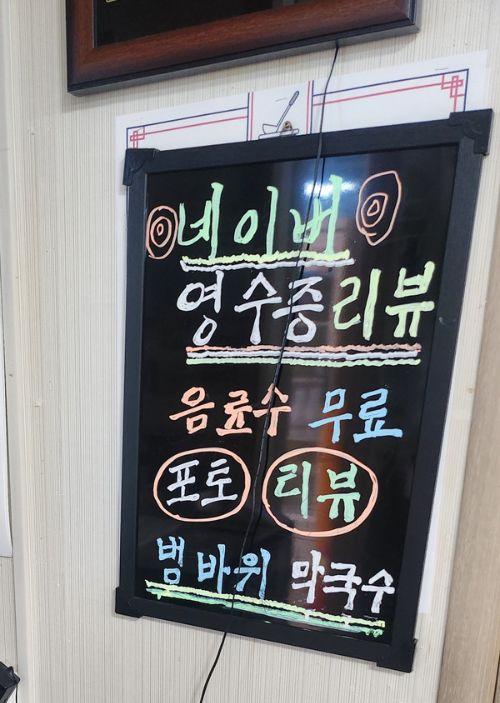 네이버
영수증리뷰
음료수 무료
포토 리뷰
범바위 막국수